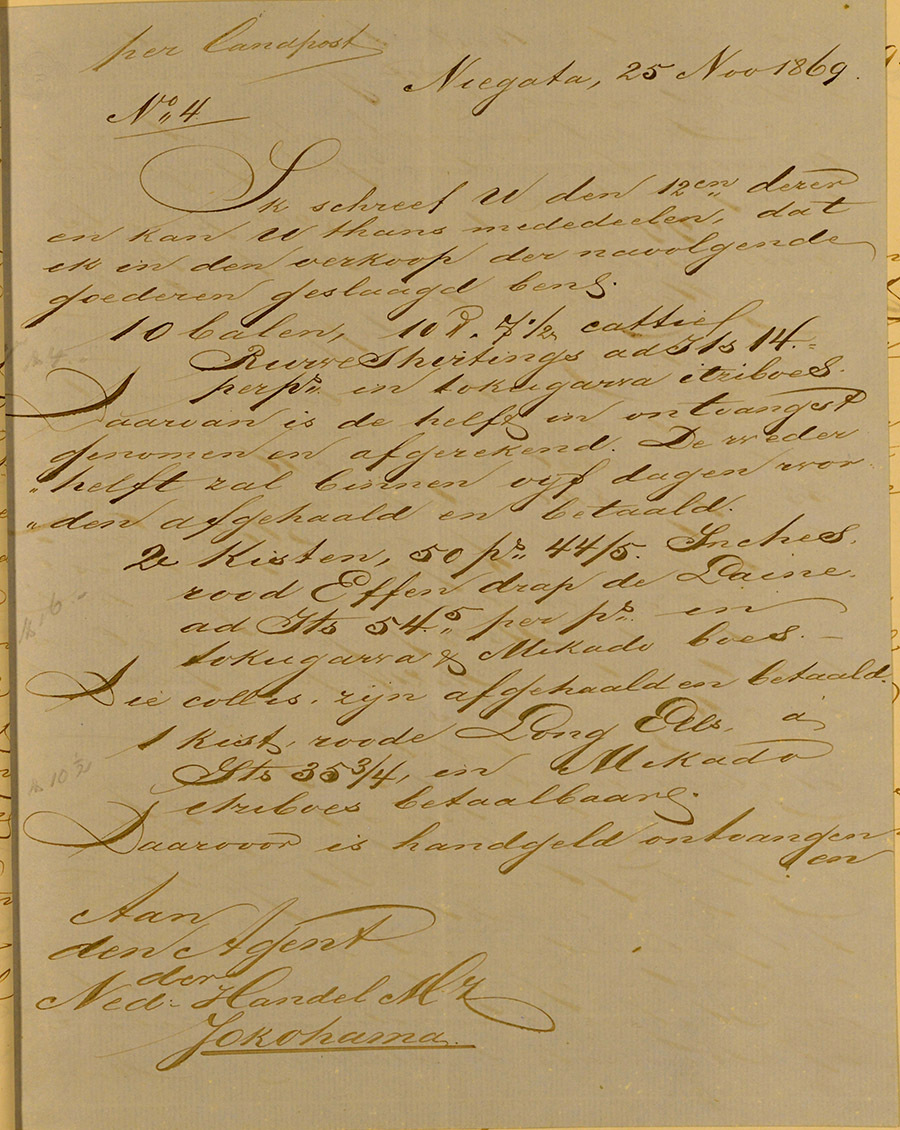 per Landpost
Niegata, 25 Nov 1869.
No 4.
Ik schreef U den 12en dezer
en kan U thans mededeelen, dat
ik in den verkoop der navolgende
goederen geslaagd ben.
10 balen, 10 d. 7 1/2 cattief
Ruwe Shirtings ad Its 14.-
per ps. in tokugawa itziboes.
Daarvan is de helft in ontvangst
genomen en afgerekend. De weder
"helft zal binnen vijf dagen wor
"den afgehaald en betaald.
2e Kisten, 50 ps. 44/5. Inches.
rood Effen drap de Laine.
ad Its 54.5 per ps. in
tokugawa & Mikado boes. -
Die collis, zijn afgehaald en betaald.
1 kist, roode Long Ells, à
Its 35 3/4, in Mikado
itziboes betaalbaar.
Daarvoor is handgeld ontvangen
en
Aan
den Agent
der
Ned. Handel Mij
Jokohama.
16.-
10 1/2